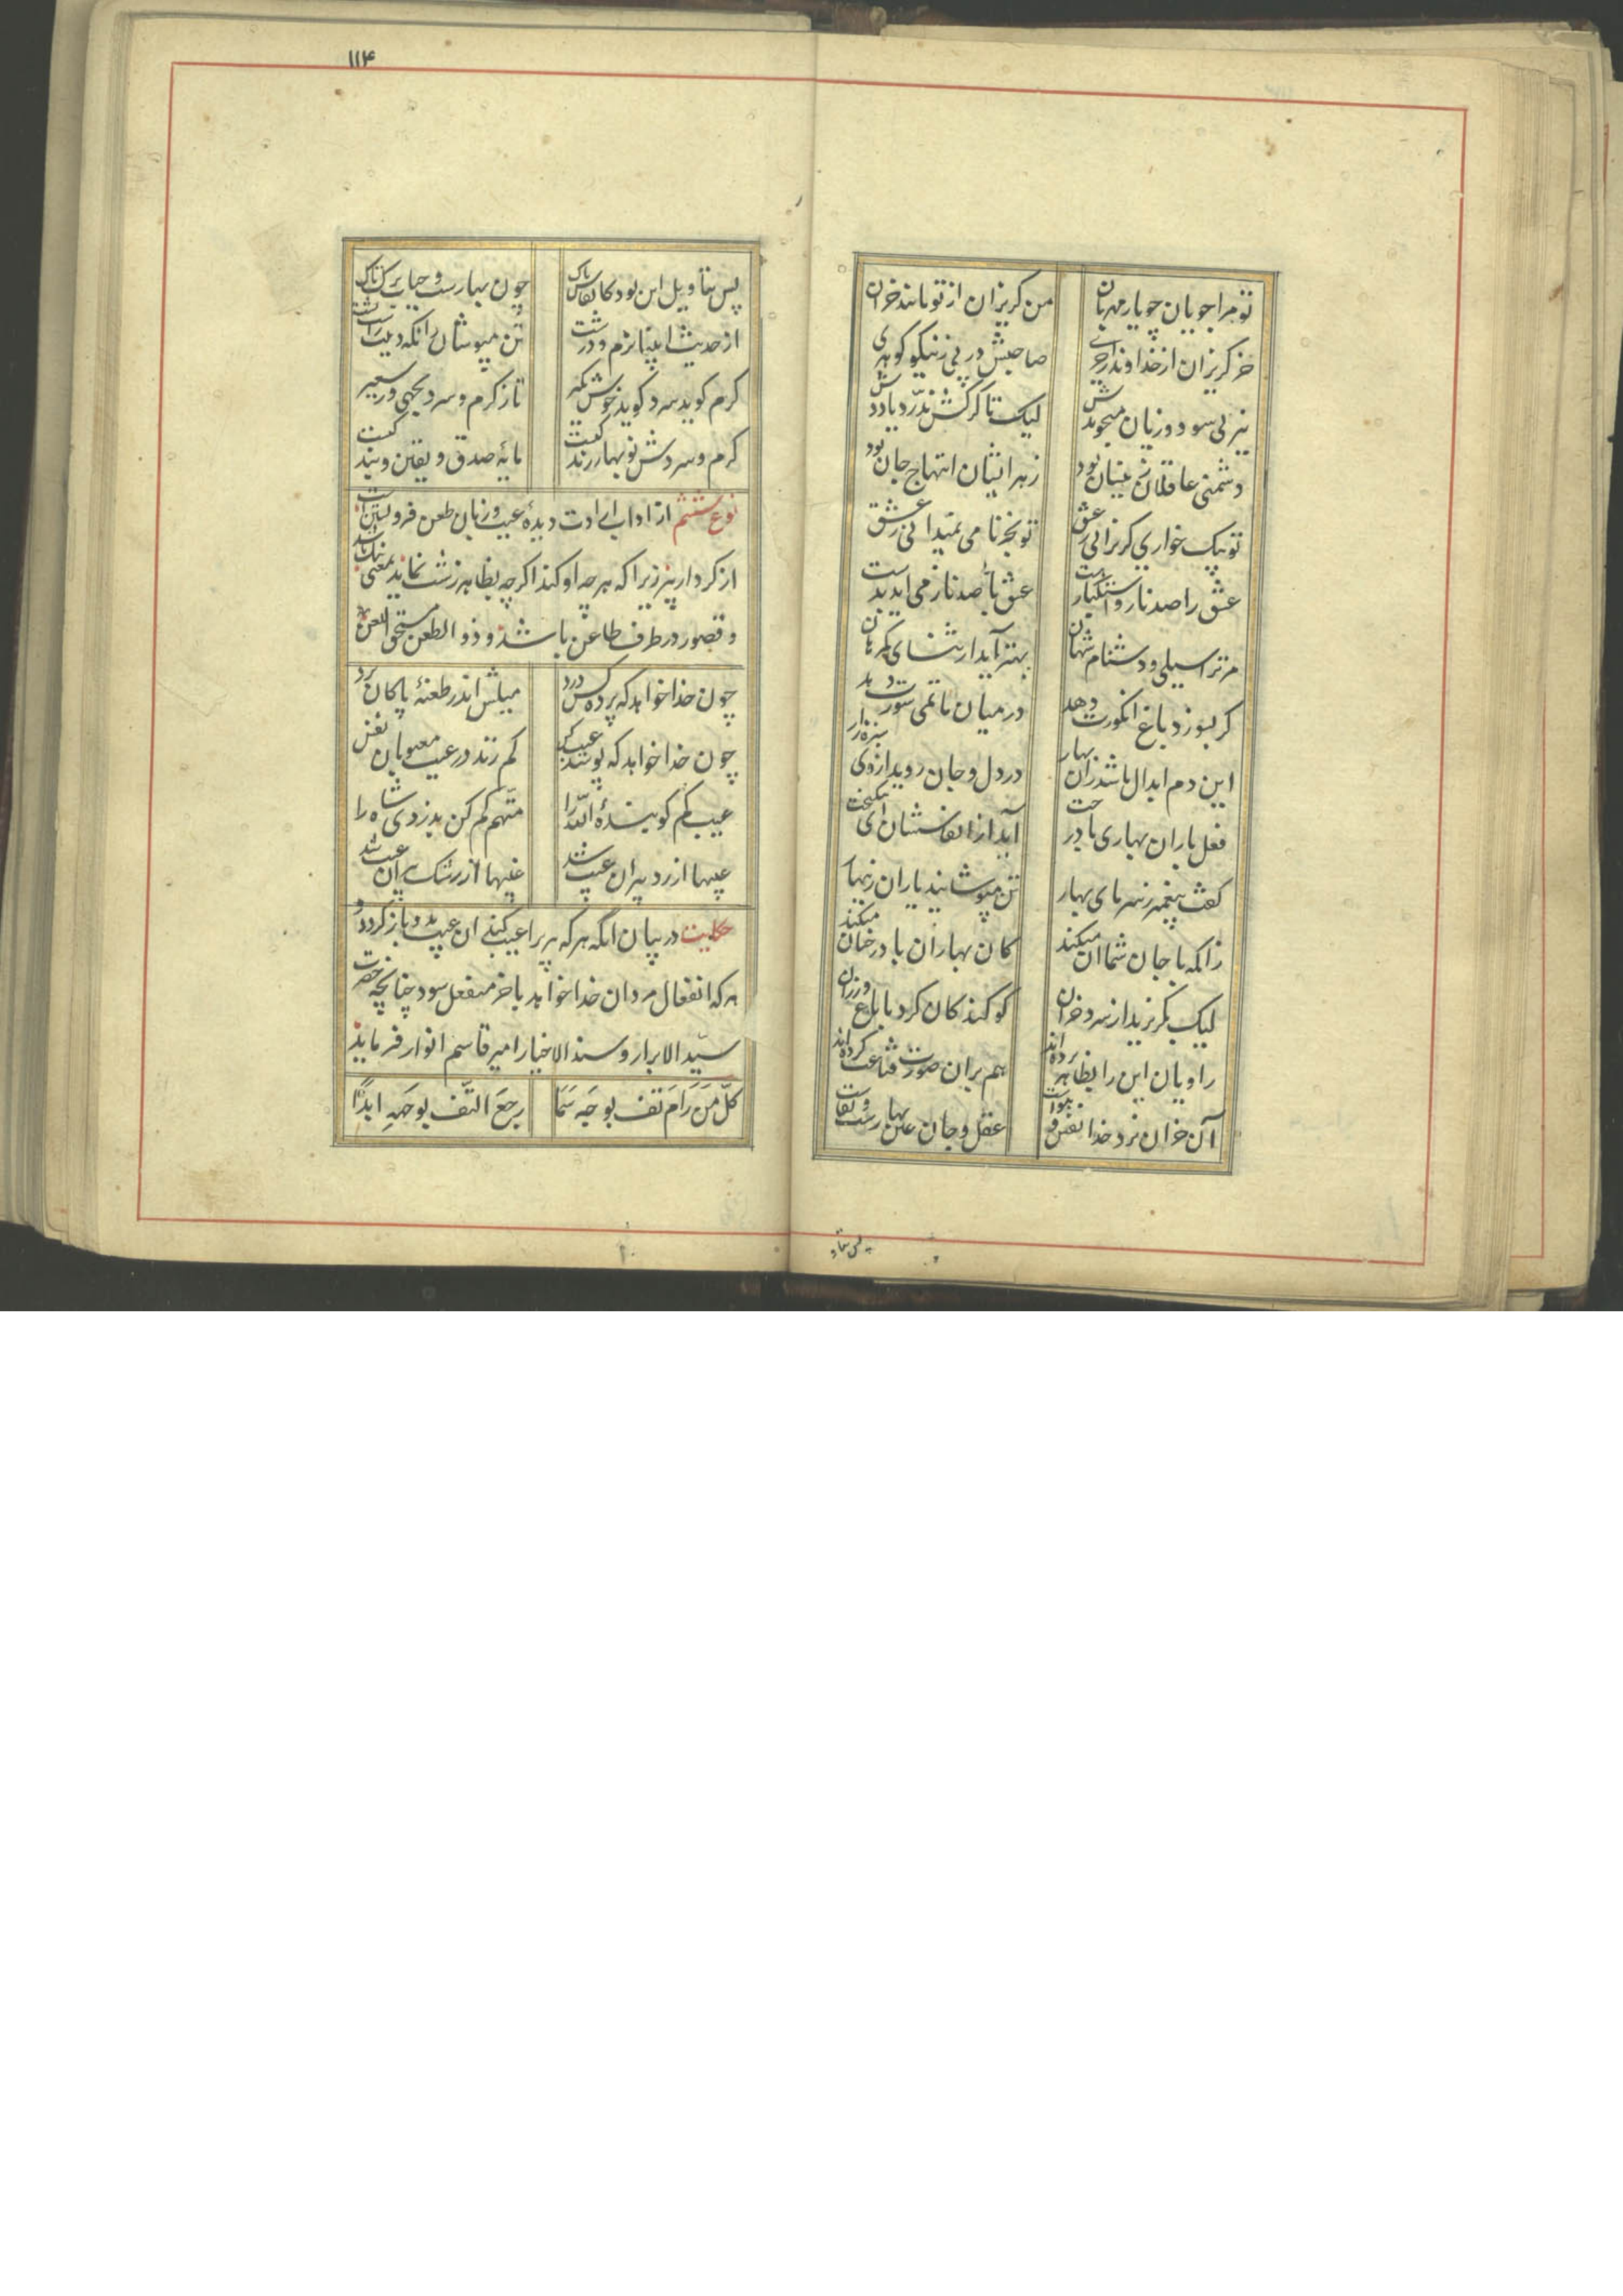 تو مرا جویان چو یار مهربان من گریزان از تو مانند خران
خر گریزان از خداوند از خری صاحبش در پی ز نیکو گوهری
نز پی سود و زیان میجویدش لیک تا گرگش ندرد یا ددش
دشمنی عاقلان زینسان بود زهر ایشان ابتهاج جان بود
تو بیک خواری گریزانی ز عشق تو بجز نامی نمیدانی ز عشق
عشق را صد ناز و استکبار هست عشق با صد ناز می آید بدست
مر ترا سیلی و دشنام شهان بهتر آید از ثنای گمرهان
گر بسوزد باغ انگورت دهد در میان ماتمی سورت دهد
این دم ابدال باشد زان بهار در دل و جان روید از وی سبزه زار
فعل باران بهاری با درخت آید از انفاسشان ای نیکبخت
گفت پیغمبر ز سرمای بهار تن مپوشانید یاران زینهار
زانکه با جان شما آن میکند کان بهاران با درختان میکند
لیک بگریزید از سرد خزان کو کند کان کرد با باغ و رزان
راویان این را بظاهر برده اند هم بر آن صورت قناعت کرده اند
آن خزان نزد خدا نفس و هواست عقل و جان عین بهارست و بقاست
پس بتاو
۱۱۴
پس بتأویل این بود کانفاس پاک چون بهارست و حیات برگ تاک
از حدیث اولیا نرم و درشت تن مپوشان زانکه دینت راست پشت
گرم گوید سرد گوید خوش بگیر تا ز گرم و سرد بجهی وز سعیر
گرم و سردش نوبهار زندگیست مایهٔ صدق و یقین و بندگیست
نوع ششم از اداب ارادت دیدهٔ عیب و زبان طعن فروبستن است
از کردار پیر زیرا که هر چه او کند اگرچه بظاهر زشت نماید بمعنی نیک باشد
و قصور در طرف طاعن باشد و ذو الطعن مستحق اللعن
چون خدا خواهد که پرده کس درد میلش اندر طعنهٔ پاکان برد
چون خدا خواهد که پوشد عیب کس کم زند در عیب معیوبان نفس
عیب کم گو بندهٔ الله را متهم کم کن بدزدی شاه را
عیبها از رد پیران عیب شد غیبها از رشک پیران غیب شد
حکایت در بیان انکه هر که پیر را عیب کند ان عیب بدو باز گردد و
هر که انفعال مردان خدا خواهد باخر منفعل شود چنانچه حضرت
سید الابرار و سند الاخیار امیر قاسم انوار فرماید
کل من رام تف بوجه سما رجع التف بوجهه ابدا